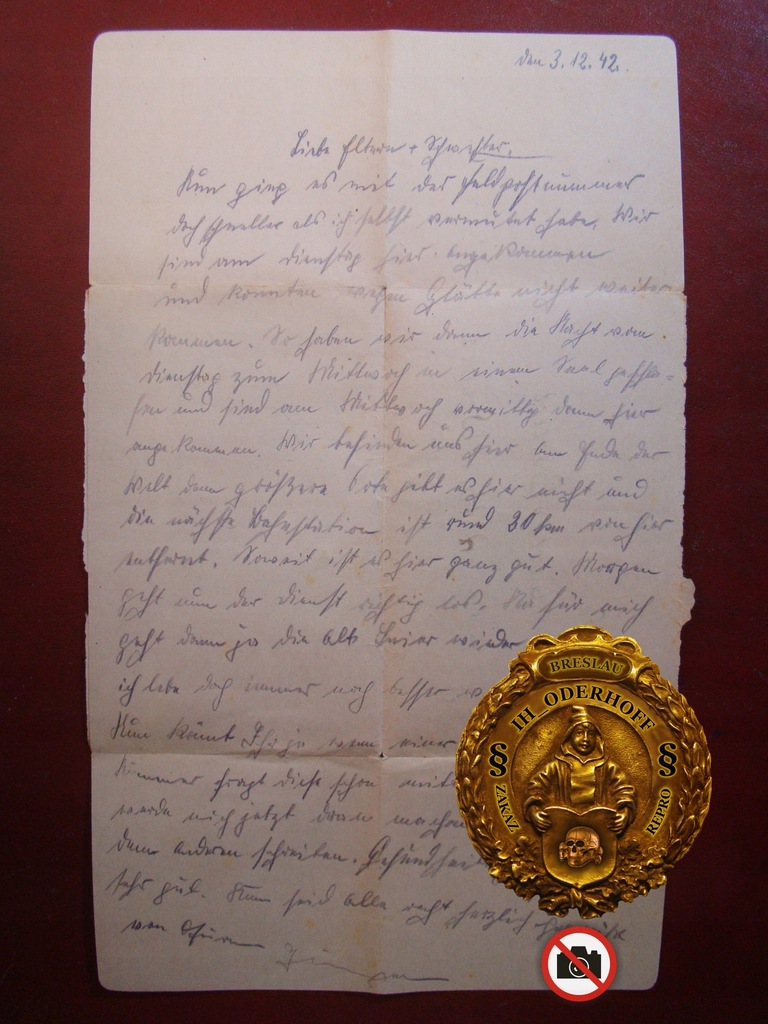 den 3.12.42.
Liebe Eltern + Schwester.
Nun ging es mit der Feldpostnummer
doch schneller als ich selbst vermutet habe. Wir
sind am Dienstag hier angekommen
und konnten wegen Glätte nicht weiter
kommen. So haben wir dann die Nacht vom
Dienstag zum Mittwoch in einem Saal geschla-
fen und sind am Mittwoch vormittg dann hier
angekommen. Wir befinden uns hier am Ende der
Welt denn größere Orte gibt es hier nicht und
die nächste Bahnstation ist rund 30 km von hier
entfernt. Soweit ist es hier ganz gut. Morgen
geht nun der Dienst richtig los. Na für mich
geht dann ja die alte Leier wieder
ich lebe doch immer noch besser
Nun könnt Ihr ja wenn einer
Nummer fragt diese schon
werde mich jetzt dran machen
dem anderen schreiben. Gesundheit
sehr gut. Nun seid alle recht herzlich
von Eurem
BRESLAU
IH ODERHOFF
§ §
ZAKAZ REPRO